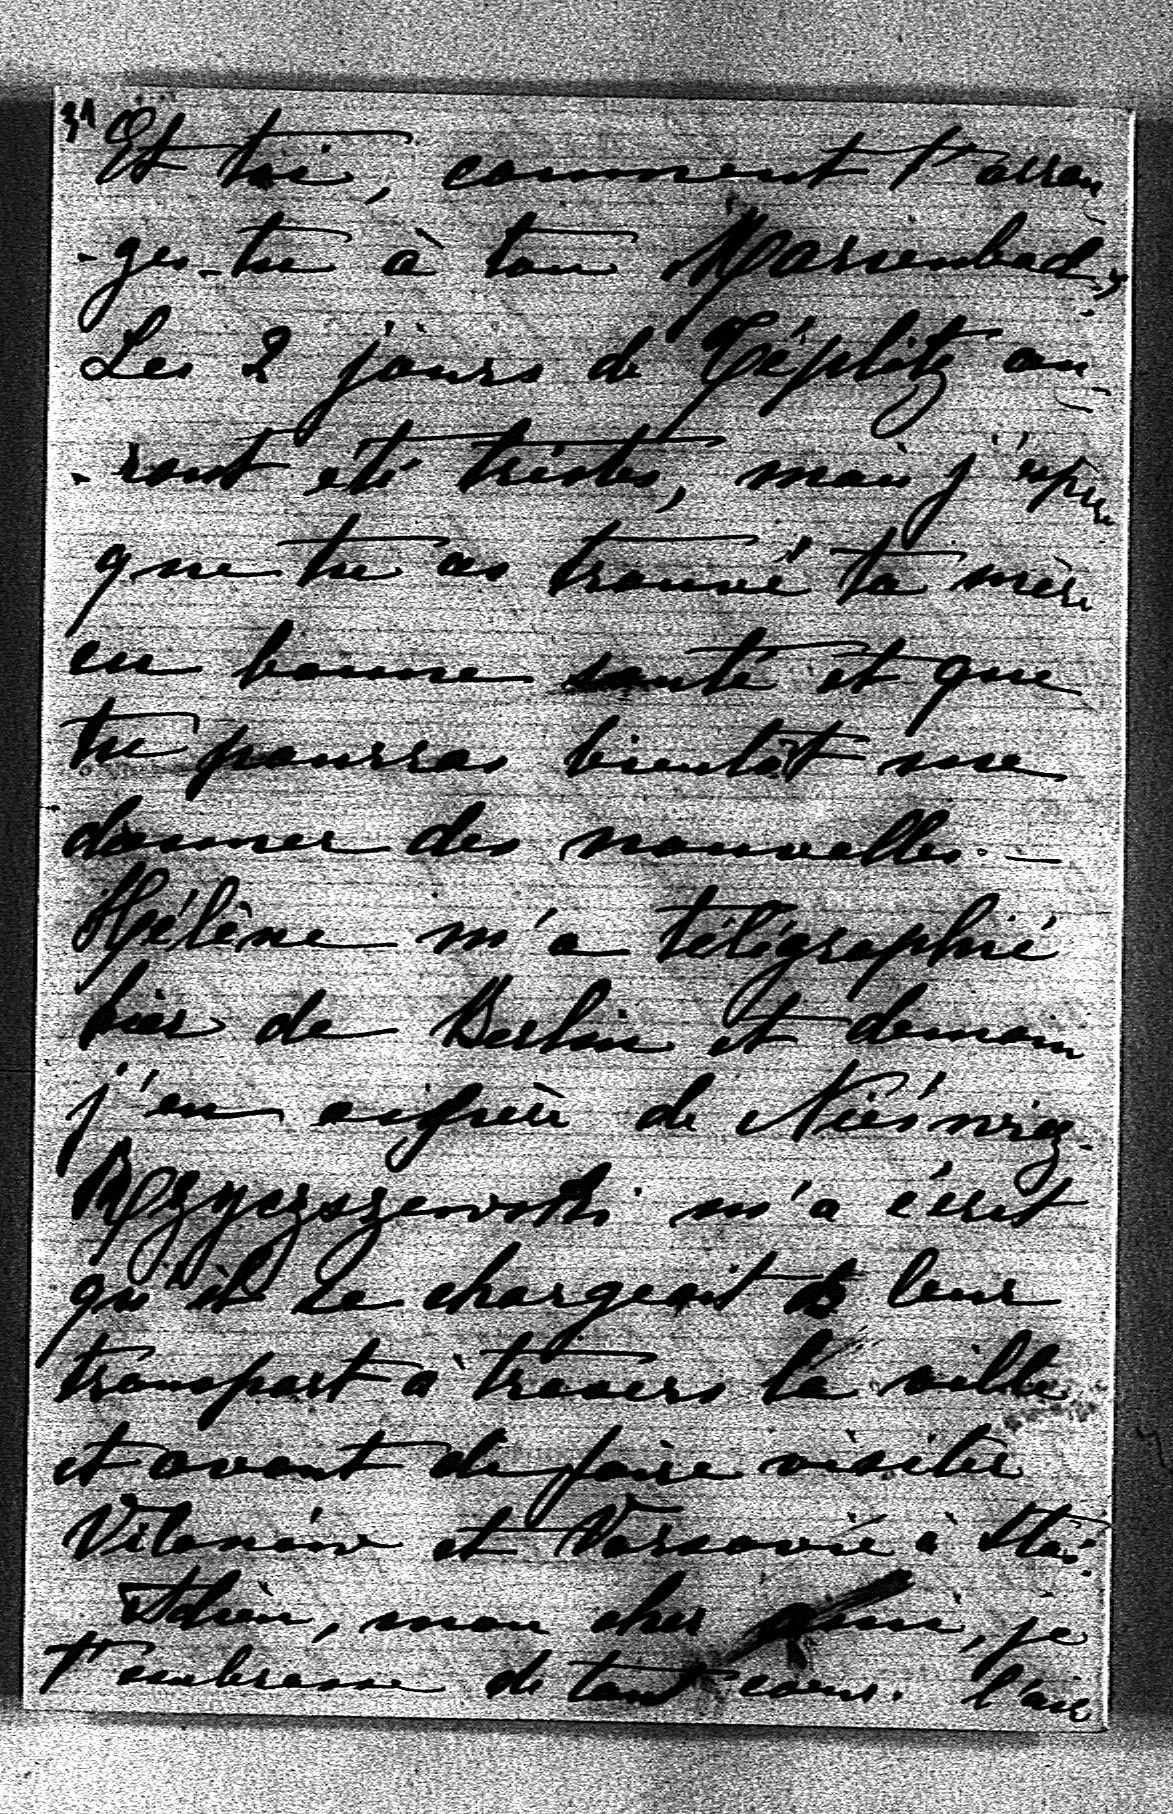 31
Et toi, comment t'arran
-ges-tu à ton Marienbad,
Les 2 jours de Téplitz au-
-ront été tristes, mais j'espère
que tu as trouvé ta mère
en bonne santé et que
tu pourras bientôt me
donner des nouvelles. —
Hélène m'a télégraphié
hier de Berlin et demain
j'en espère de Nieświez.
m'a écrit
qu'il se chargeait de leur
transport à travers la ville
et avant de faire visiter
Vilanów et Varsovie à Stas.
Adieu, mon cher ami, je
t'embrasse de tout coeur.